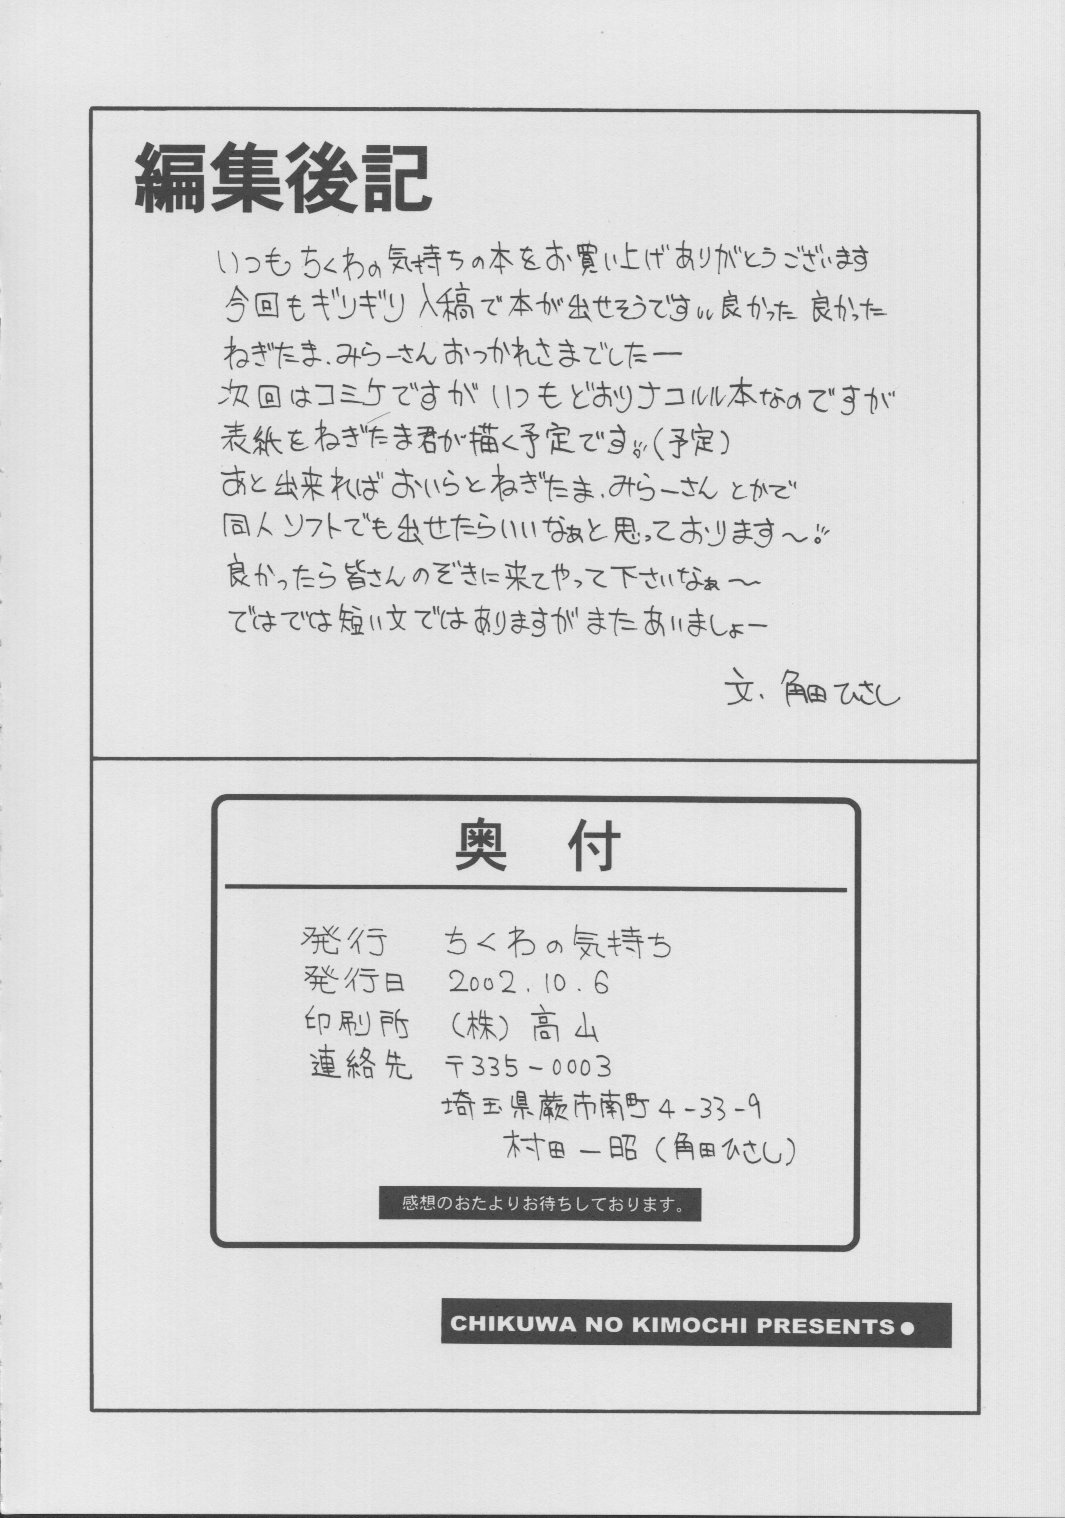 編集後記
いつもちくわの気持ちの本をお買い上げありがとうございます
今回もギリギリ入稿で本が出せそうです。良かった 良かった
ねぎたま、みらーさんおつかれさまでしたー
次回はコミケですがいつもどおりナコルル本なのですが
表紙をねぎたま君が描く予定です。(予定)
あと出来ればおいらとねぎたま、みらーさんとかで
同人ソフトでも出せたらいいなぁと思っております〜。
良かったら皆さんのぞきに来てやって下さいなぁ〜
ではでは短い文ではありますがまたあいましょー
文、角田ひさし
奥 付
発行 ちくわの気持ち
発行日 2002.10.6
印刷所 (株)高山
連絡先 〒335-0003
埼玉県蕨市南町4-33-9
村田一昭(角田ひさし)
感想のおたよりお待ちしております。
CHIKUWA NO KIMOCHI PRESENTS●